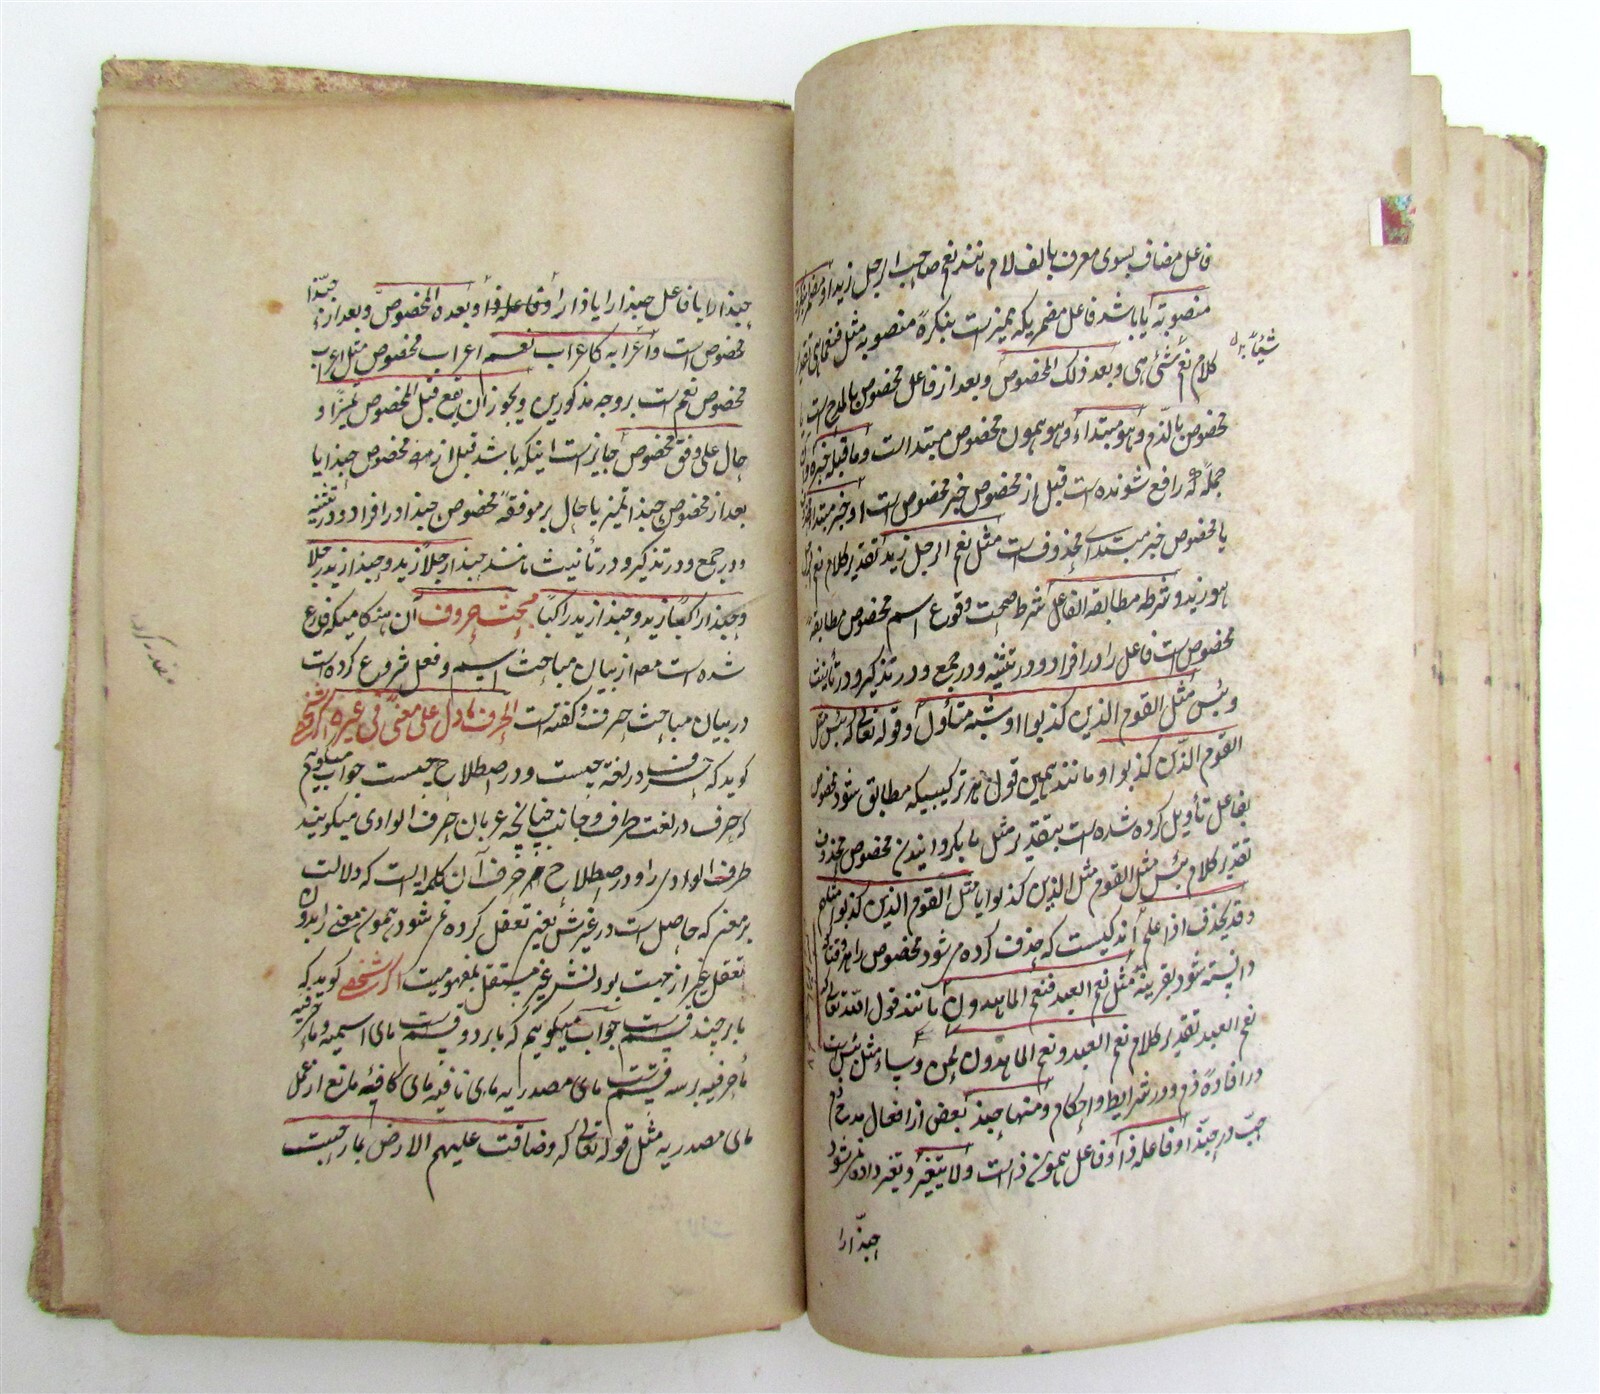 فاعل مضاف بسوی معرف بالف لام مانند نعم صاحب الرجل زید او مضمرا
منصوبة یا باشد فاعل مضمریکه ممیزست بنکرهٔ منصوبه مثل فنعما هی
شیئا
کلام نعم شئی هی و بعد ذلک المخصوص و بعد از فاعل مخصوص بالمدح است یا
مخصوص بالذم و هو مبتداء و هو همون مخصوص مبتدا است وما قبله خبره
جمله که رافع شونده است قبل از مخصوص خبر مخصوص است او خبر مبتدا
یا مخصوص خبر مبتدای محذوف است مثل نعم الرجل زید تقدیر کلام نعم
هو زید و شرطه مطابقة الفاعل شرط صحت وقوع اسم مخصوص مطابقة
مخصوص است فاعل را در افراد و در تثنیه و در جمع و در تذکیر و در تأنیث
و بئس مثل القوم الذین کذبوا او شبهه متأول و قوله تعالی که بئس مثل
القوم الذین کذبوا و مانند همین قول هر ترکیبیکه مطابق نبود مخصوص
بفاعل تأویل کرده شده است بتقدیر مثل یا بگردانیدن مخصوص محذوف
تقدیر کلام بئس مثل القوم مثل الذین کذبوا یا مثل القوم الذین کذبوا مثلهم
و قد یحذف اذا علم اندکیست که حذف کرده می شود مخصوص را هر وقتیکه
دانسته شود بقرینه مثل نعم العبد فنعم الماهدون مانند قول الله تعالی که
نعم العبد تقدیر کلام نعم العبد و نعم الماهدون نحن و ساء مثل بئس است
در افادهٔ ذم و در شرایط و احکام و منها حبذ بعض از افعال مدح و ذم
حب در حبذا و فاعله ذا و فاعل همون ذا است ولا یتغیر و تغیر داده نمی شود
حبذا را
حبذا را یا فاعل حبذا را یا ذا را و فاعله ذا و بعده المخصوص و بعد از حبذا
مخصوص است و اعرابه کاعراب نعم اعراب مخصوص مثل اعراب
مخصوص نعم است بر وجه مذکورین و یجوز ان یقع قبل المخصوص تمیزا و
حال علی وفق مخصوص جایز است اینکه باشد قبل از مخصوص حبذا یا
بعد از مخصوص حبذا تمیز یا حال بر موفقه مخصوص حبذا در افراد و در تثنیه
و در جمع و در تذکیر و در تأنیث مانند حبذا رجلا زید و حبذا زید رجلا
و حبذا راکبا زید و حبذا زید راکبا مبحث حروف آن هنگامیکه فارغ
شده است مص از بیان مباحث اسم و فعل شروع کرده است
در بیان مباحث حرف و گفته است الحرف ما دل علی معنی فی غیره اگر شخصی
کوید که حرف در لغة چیست و در اصطلاح چیست جواب میگویم
که حرف در لغت طرف و جانب چنانچه عربان حرف الوادی میگویند
طرف الوادی را و در اصطلاح حرف آن کلمه ایست که دلالت
بر معنی که حاصل است در غیرش یعنی تعقل کرده می شود همون معنی را بدون
تعقل غیر از جهت بودنش غیر مستقل بمفهومیت اگر شخصی کوید که
ما بر چند قسم است جواب میگوییم که ما بر دو قسم است مای اسمیه و ما حرفیه
ما حرفیه بر سه قسم است مای مصدریه مای نافیه مای کافیه مانع از عمل
مای مصدریه مثل قوله تعالی که و ضاقت علیهم الارض بما رحبت